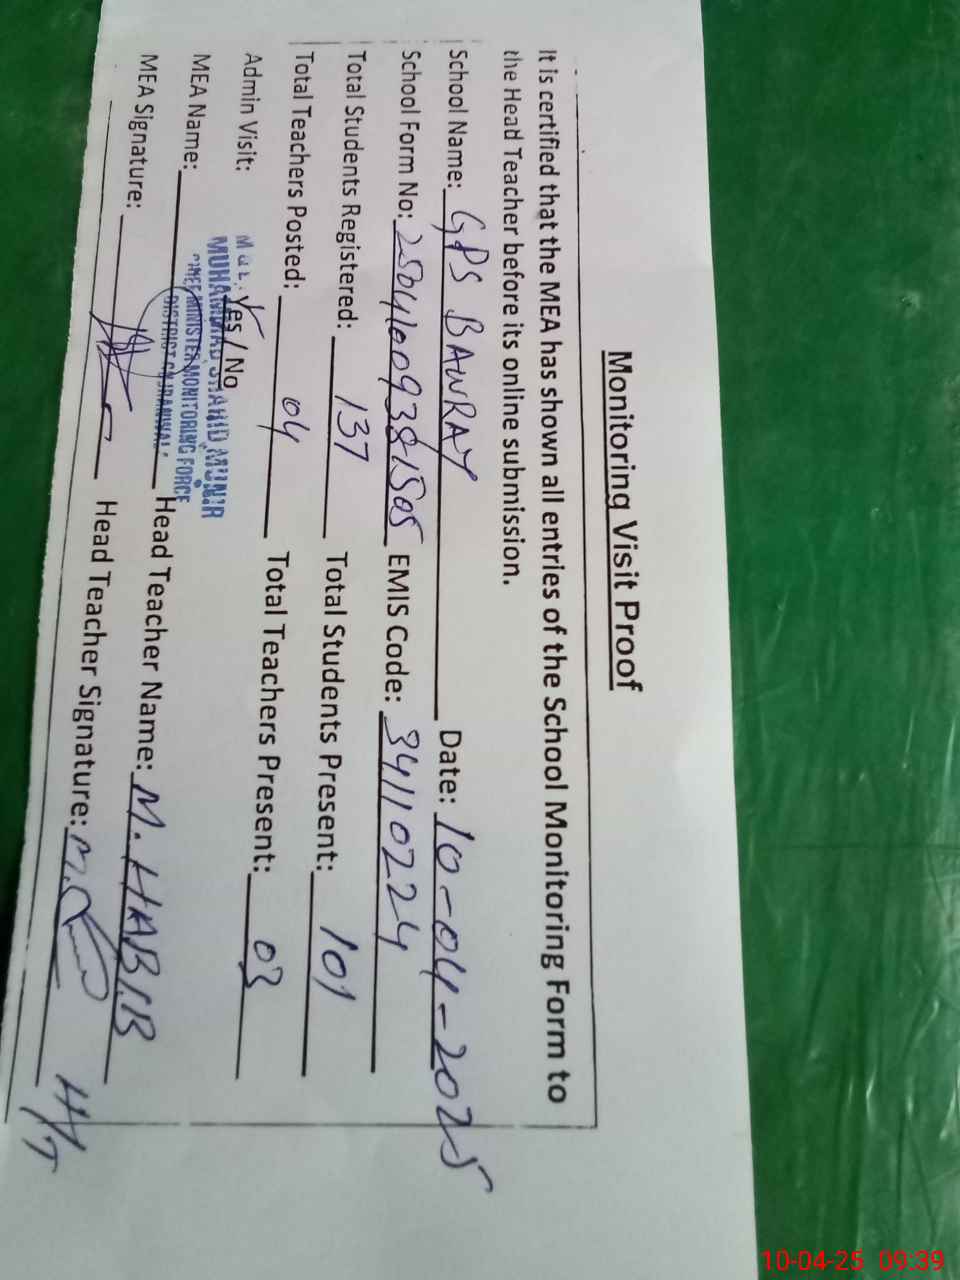 Monitoring Visit Proof
It is certified that the MEA has shown all entries of the School Monitoring Form to
the Head Teacher before its online submission.
School Name: GPS BAWRAY Date: 10-04-2025
School Form No: EMIS Code: 34110224
Total Students Registered: 137 Total Students Present: 101
Total Teachers Posted: 04 Total Teachers Present: 03
Admin Visit: Yes / No
MUHAMMAD SHAHID MUNIR
CHIEF MINISTER MONITORING FORCE
DISTRICT GUJRANWALA
MEA Name: Head Teacher Name: M. HABIB
MEA Signature: Head Teacher Signature:
H/T
10-04-25 09:39